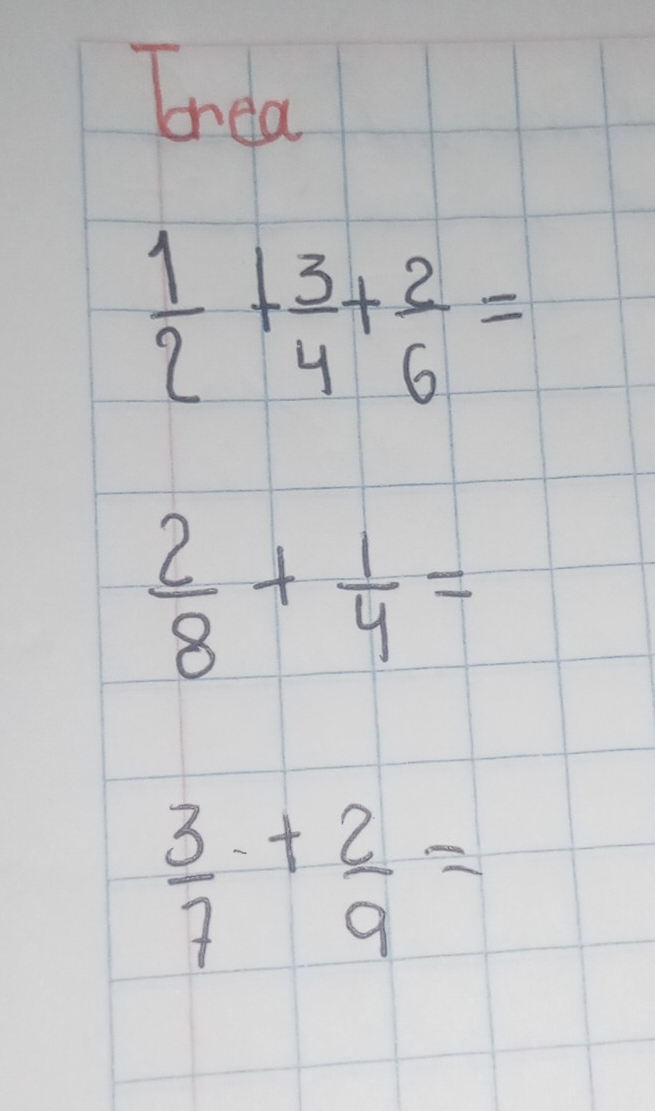 Tarea
1/2 + 3/4 + 2/6 =
2/8 + 1/4 =
3/7 + 2/9 =